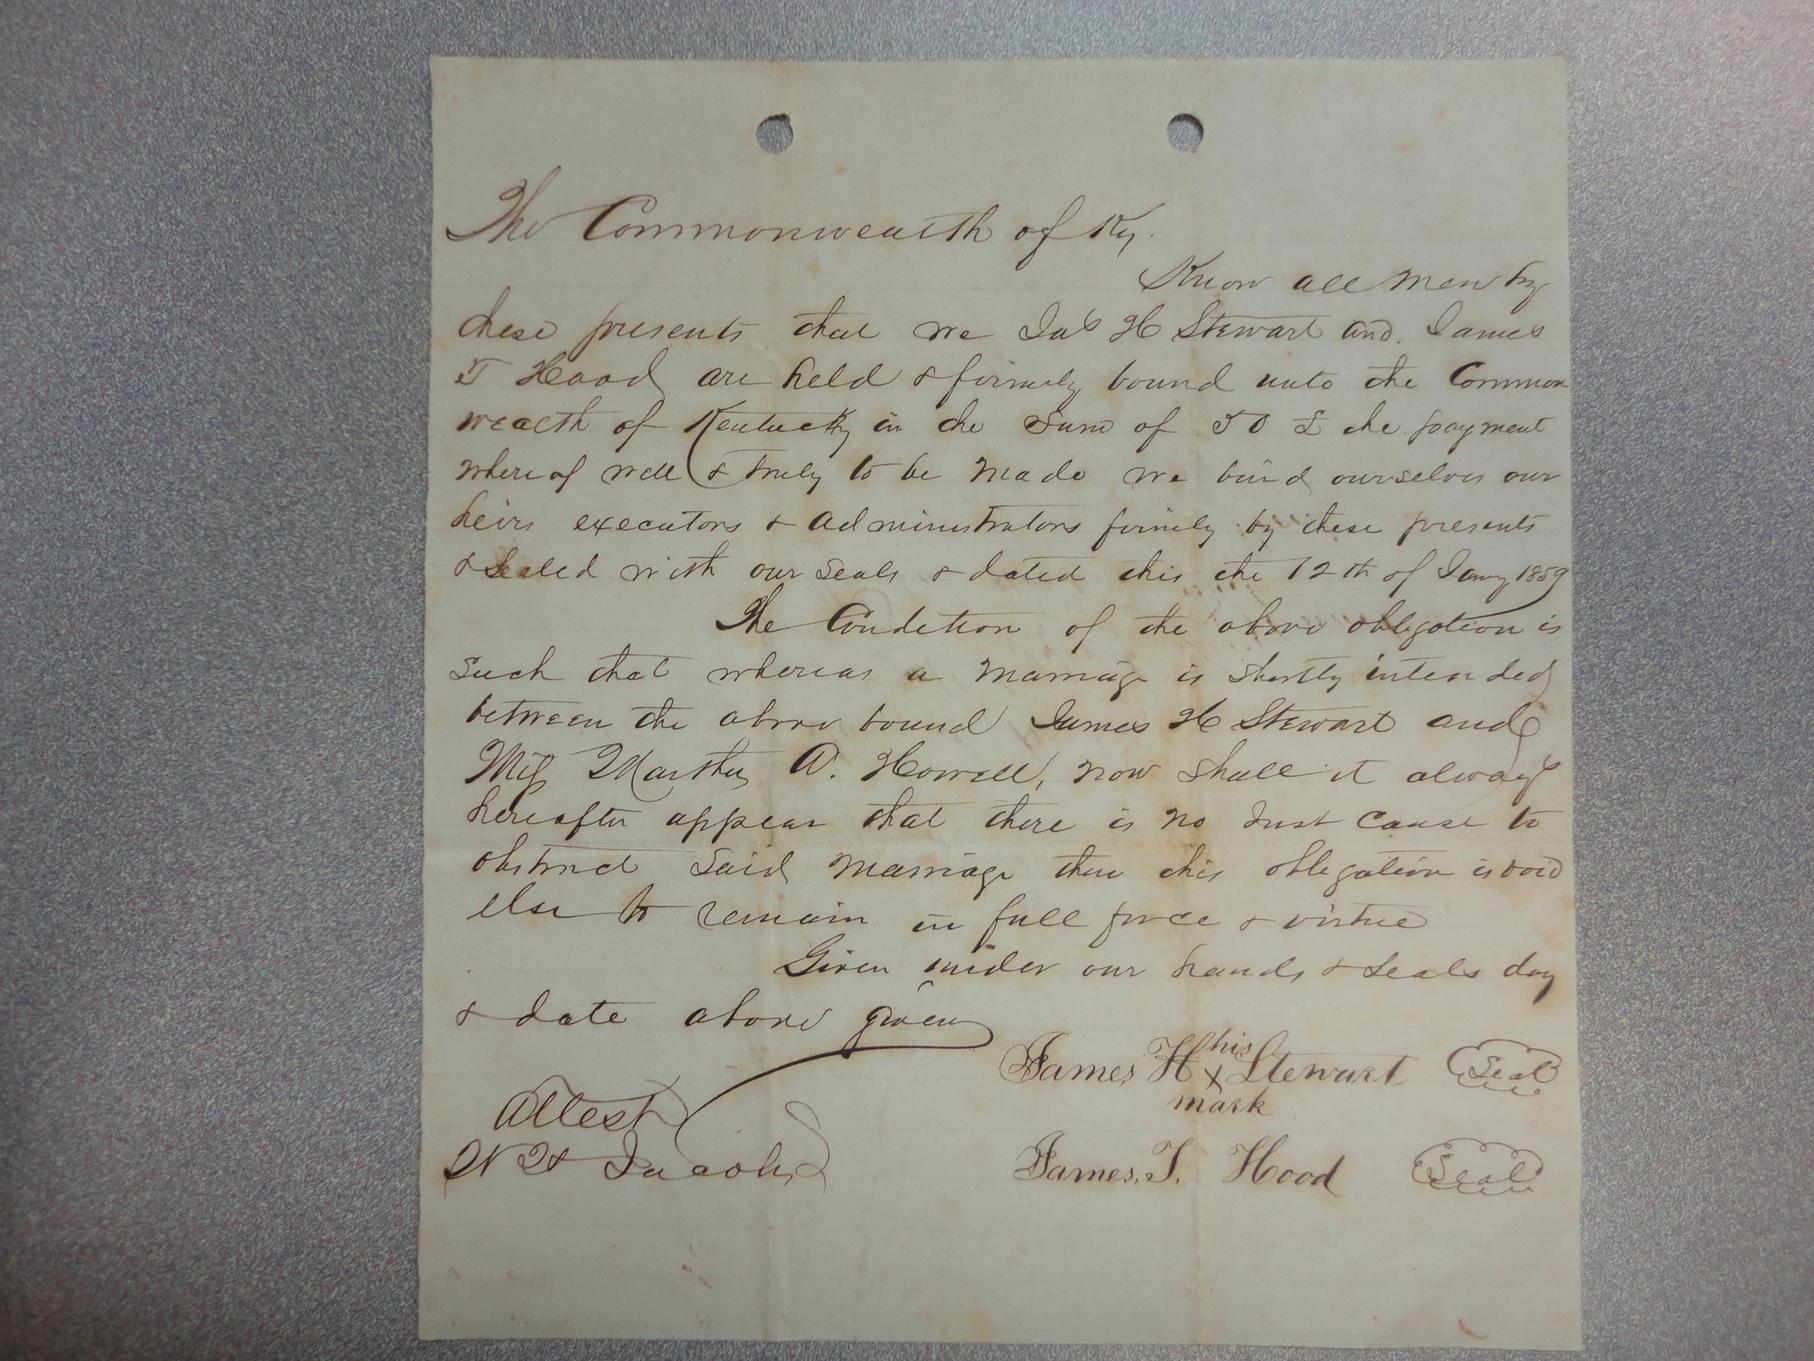 The Commonwealth of Ky.
Know all men by
these presents that we Jas H Stewart and James
T Hood are held & firmly bound unto the Common
wealth of Kentucky in the Sum of 50 £ the payment
where of well & truly to be made we bind ourselves our
heirs executors & administrators firmly by these presents
& Sealed with our Seals & dated this the 12th of Jany 1859
The Condition of the above obligation is
Such that whereas a marriage is shortly intended
between the above bound James H Stewart and
Miss Martha A. Howell, now shall it always
hereafter appear that there is no Just cause to
obstruct said marriage then this obligation is void
else to remain in full force & virtue
Given under our hands & Seals day
& date above given
James H his Stewart Seal
x
mark
Attest
James. T. Hood Seal
Jacobs